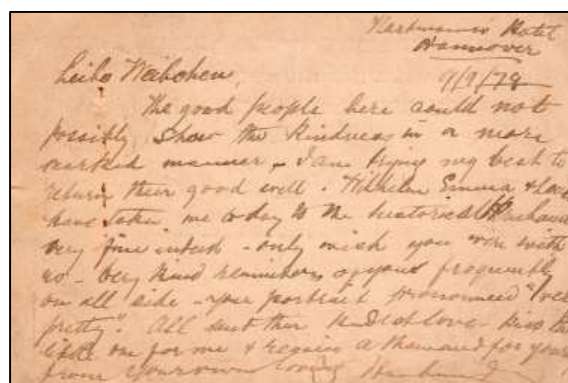 Hartmann's Hotel
Hannover
Leibe Weibchen, 9/9/78
The good people here could not
possibly show the kindness in a more
marked manner, I am trying my best to
return their good will. Wilhelm Emma &
have taken me today to the historical
very fine indeed - only wish you were with
us - Very kind reminders of you frequently
on all side - your portrait pronounced "very
pretty". All send their kindest love - kiss the
little one for me & receive a thousand for your
from your own loving Husband